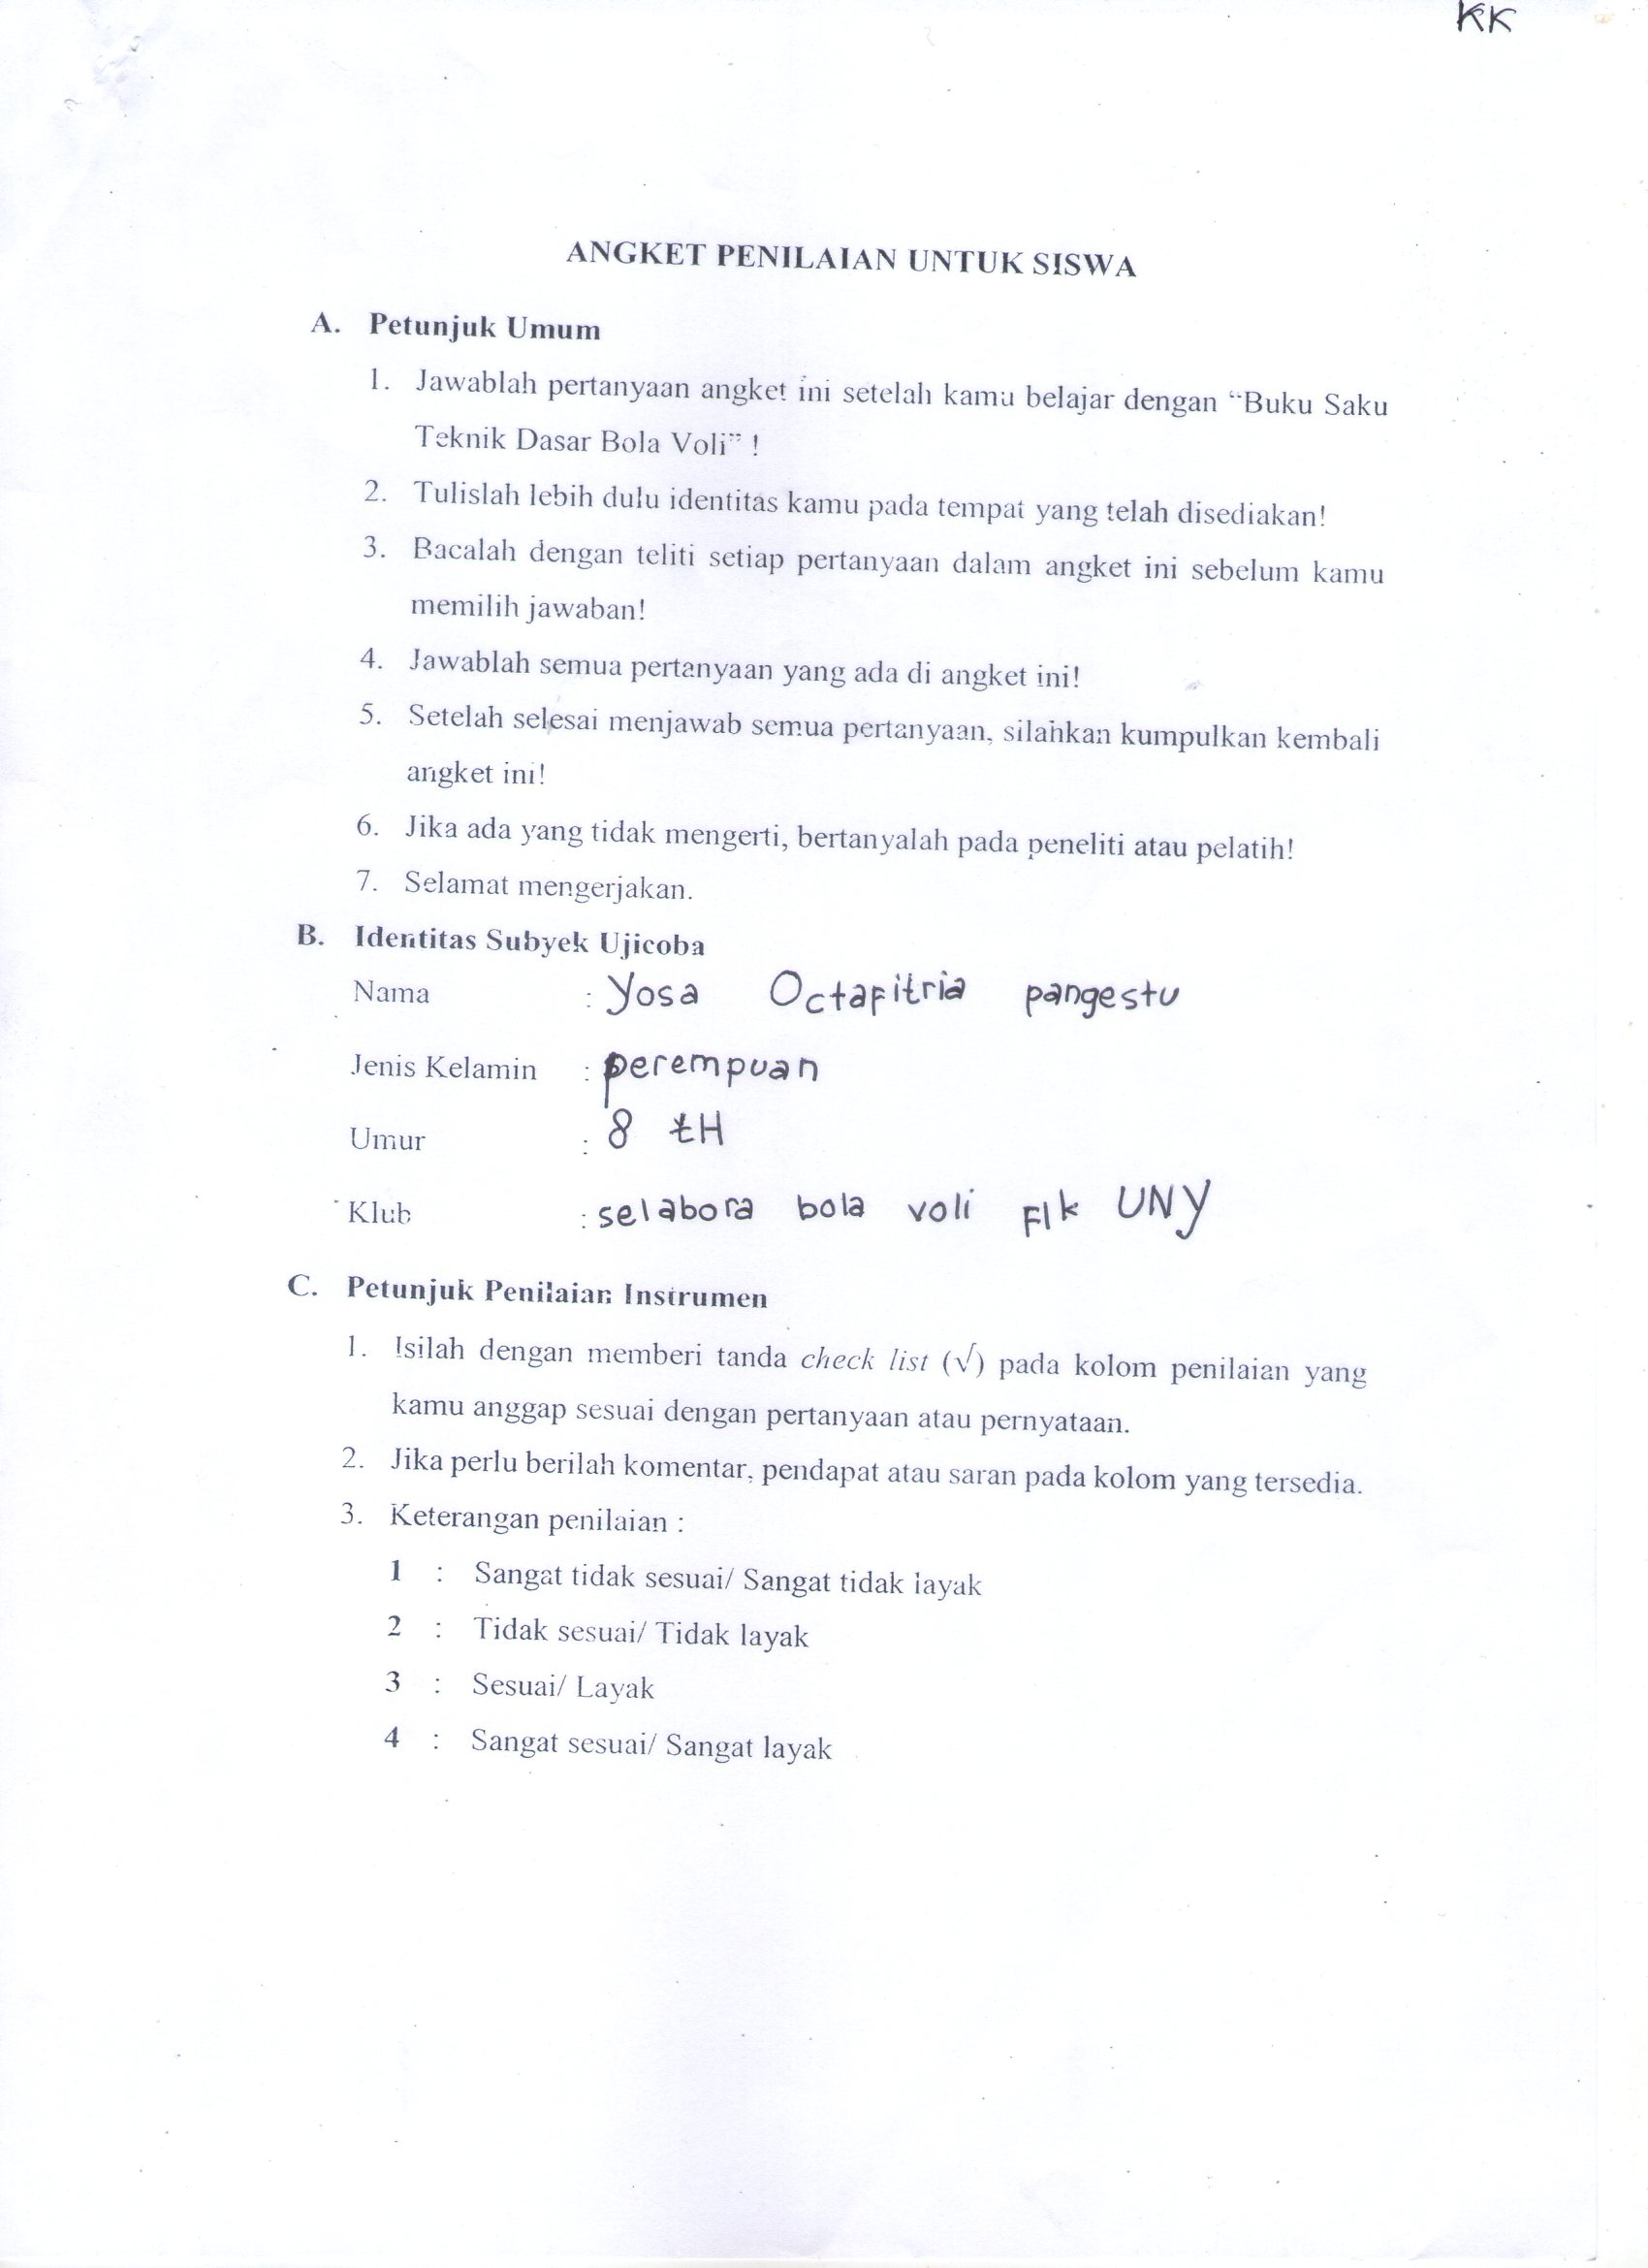 KK
ANGKET PENILAIAN UNTUK SISWA
A. Petunjuk Umum
1. Jawablah pertanyaan angket ini setelah kamu belajar dengan “Buku Saku
Teknik Dasar Bola Voli” !
2. Tulislah lebih dulu identitas kamu pada tempat yang telah disediakan!
3. Bacalah dengan teliti setiap pertanyaan dalam angket ini sebelum kamu
memilih jawaban!
4. Jawablah semua pertanyaan yang ada di angket ini!
5. Setelah selesai menjawab semua pertanyaan, silahkan kumpulkan kembali
angket ini!
6. Jika ada yang tidak mengerti, bertanyalah pada peneliti atau pelatih!
7. Selamat mengerjakan.
B. Identitas Subyek Ujicoba
Nama : Yosa Octafitria pangestu
Jenis Kelamin : perempuan
Umur : 8 tH
Klub : selabora bola voli FIk UNY
C. Petunjuk Penilaian Instrumen
1. Isilah dengan memberi tanda check list (√) pada kolom penilaian yang
kamu anggap sesuai dengan pertanyaan atau pernyataan.
2. Jika perlu berilah komentar, pendapat atau saran pada kolom yang tersedia.
3. Keterangan penilaian :
1 : Sangat tidak sesuai/ Sangat tidak layak
2 : Tidak sesuai/ Tidak layak
3 : Sesuai/ Layak
4 : Sangat sesuai/ Sangat layak